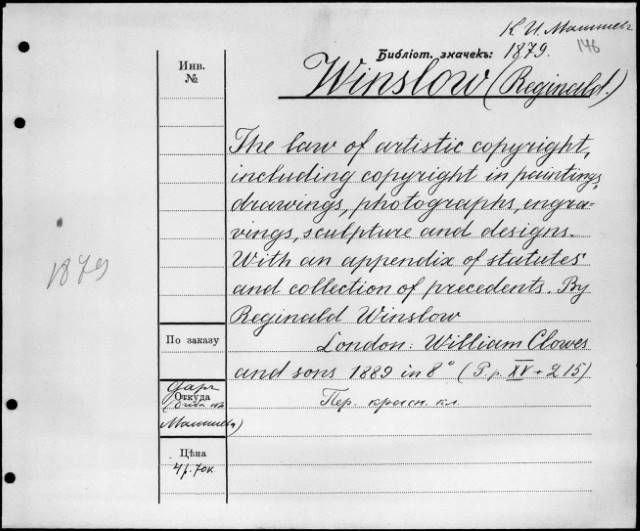 К. И. Малышев
146
Библіот. значекъ: 1879.
Инв.
№
Winslow (Reginald.)
The law of artistic copyright,
including copyright in paintings,
drawings, photographs, engra-
vings, sculpture and designs.
With an appendix of statutes
and collection of precedents. By
Reginald Winslow
London: William Clowes
and sons 1889 in 8° (P.p. XV + 215)
Пер. красн. кл.
1879
По заказу
Даръ
Откуда
Малышева)
Цѣна
4 р. 70 к.